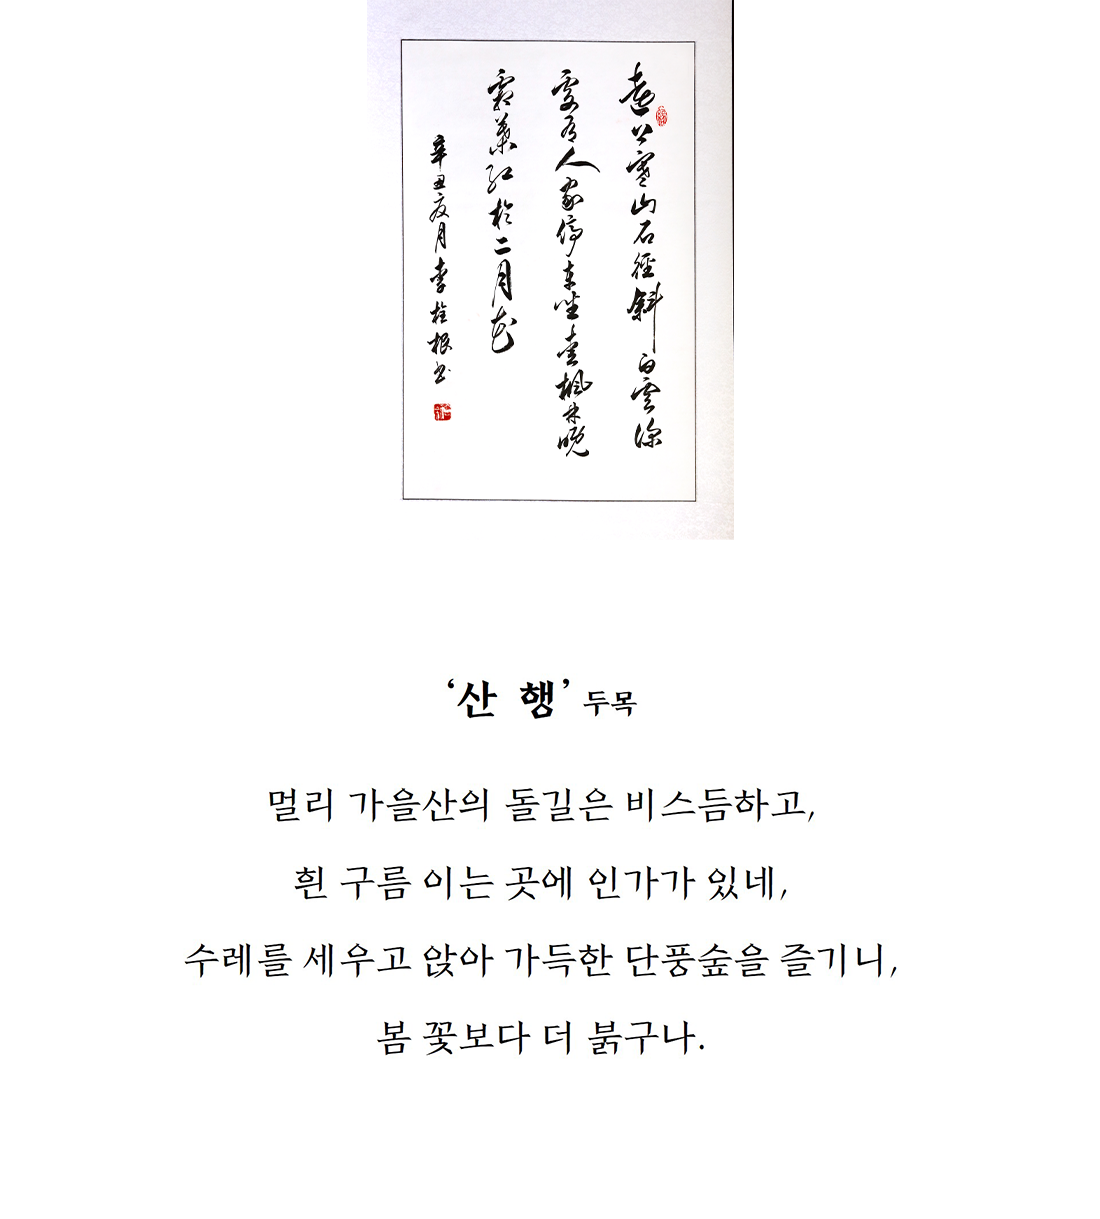 遠上寒山石徑斜 白雲深
處有人家停車坐愛楓林晚
霜葉紅於二月花
辛丑 月 李 根書
‘산 행’ 두목
멀리 가을산의 돌길은 비스듬하고,
흰 구름 이는 곳에 인가가 있네,
수레를 세우고 앉아 가득한 단풍숲을 즐기니,
봄 꽃보다 더 붉구나.